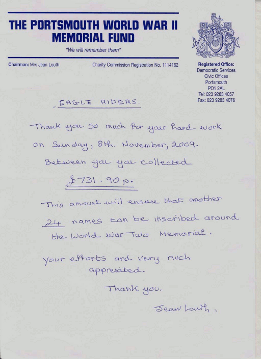 THE PORTSMOUTH WORLD WAR II
MEMORIAL FUND
"We will remember them"
Chairman: Mrs Jean Louth
Charity Commission Registration No. 1114162
Registered Office:
Democratic Services
Civic Offices
Portsmouth
PO1 2AL
Tel: 023 9283 4057
Fax: 023 9283 4076
EAGLE RIDERS
Thank you so much for your hard work
on Sunday, 8th November, 2009.
Between you you collected
£731.90
This amount will ensure that another
24 names can be inscribed around
the World War Two Memorial.
your efforts and very much
appreciated.
Thank you.
Jean Louth.